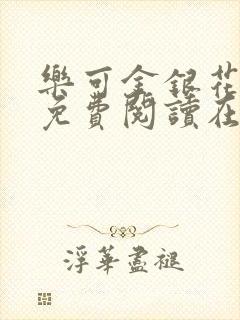 樂可金銀花
免費閱讀在
浮華盡褪